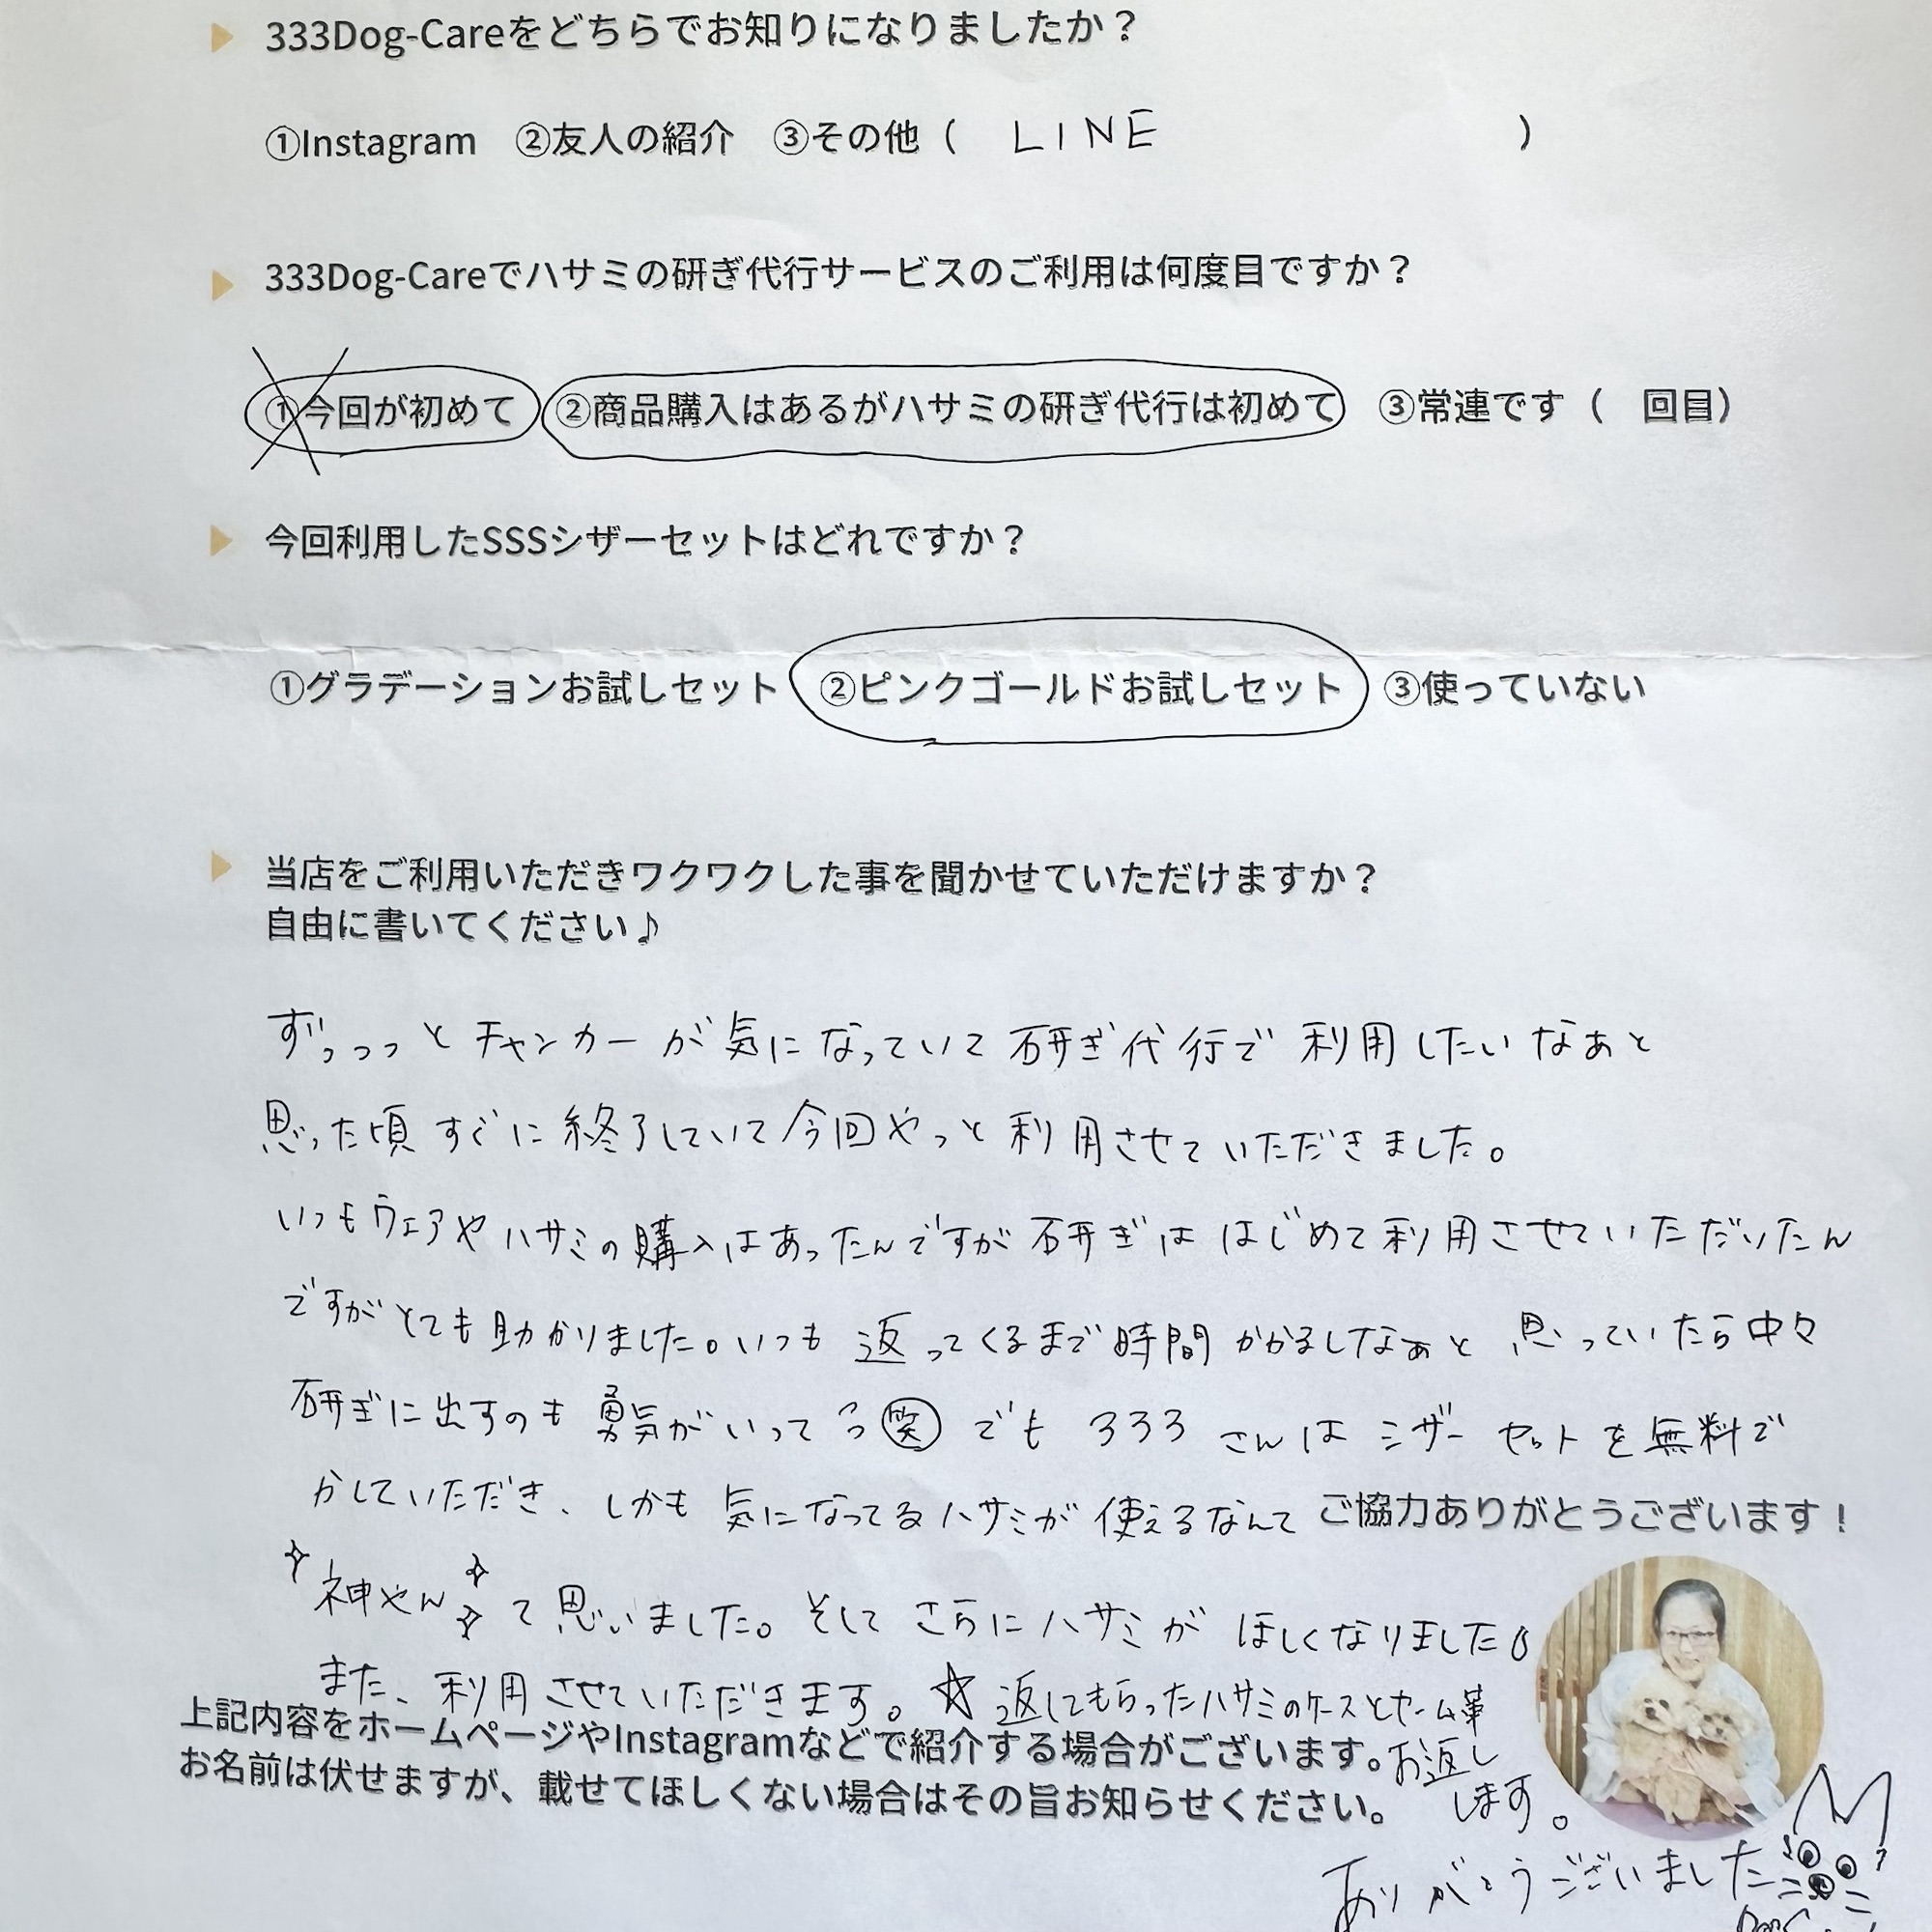 333Dog-Careをどちらでお知りになりましたか？
①Instagram ②友人の紹介 ③その他（ LINE ）
333Dog-Careでハサミの研ぎ代行サービスのご利用は何度目ですか？
①今回が初めて ②商品購入はあるがハサミの研ぎ代行は初めて ③常連です（ 回目）
今回利用したSSSシザーセットはどれですか？
①グラデーションお試しセット ②ピンクゴールドお試しセット ③使っていない
当店をご利用いただきワクワクした事を聞かせていただけますか？
自由に書いてください♪
ずっっっとチャンカーが気になっていて研ぎ代行で利用したいなぁと
思った頃すぐに終了していて今回やっと利用させていただきました。
いつもウェアやハサミの購入はあったんですが研ぎははじめて利用させていただいたん
ですがとても助かりました。いつも返ってくるまで時間かかるしなぁと思っていたら中々
研ぎに出すのも勇気がいって 笑 でも333さんはシザーセットを無料で
かしていただき、しかも気になってるハサミが使えるなんて
ご協力ありがとうございます！
神やんて思いました。そしてさらにハサミがほしくなりました
また、利用させていただきます。☆返してもらったハサミのケースとセーム革
上記内容をホームページやInstagramなどで紹介する場合がございます。
お返し
お名前は伏せますが、載せてほしくない場合はその旨お知らせください。
します。
ありがとうございました